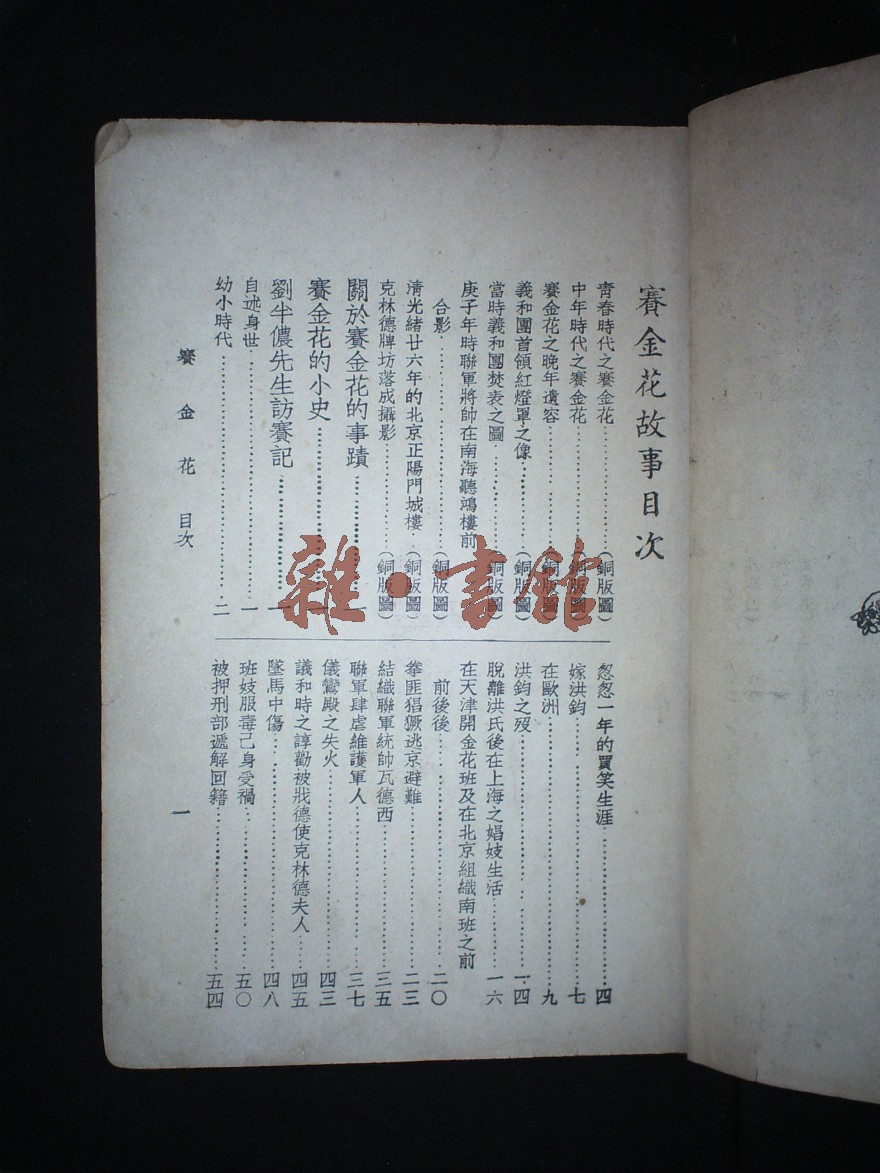 賽金花故事目次
青春時代之賽金花……(銅版圖)
中年時代之賽金花……(銅版圖)
賽金花之晚年遺容……(銅版圖)
義和團首領紅燈罩之像……(銅版圖)
當時義和團焚表之圖……(銅版圖)
庚子年時聯軍將帥在南海聽鴻樓前
合影……(銅版圖)
清光緒廿六年的北京正陽門城樓……(銅版圖)
克林德牌坊落成攝影……(銅版圖)
關於賽金花的事蹟……一
賽金花的小史……一
劉半儂先生訪賽記……一
自述身世……一
幼小時代……二
忽忽一年的買笑生涯……四
嫁洪鈞……七
在歐洲……九
洪鈞之歿……一四
脫離洪氏後在上海之娼妓生活……一六
在天津開金花班及在北京組織南班之前
前後後……二〇
拳匪猖獗逃京避難……二三
結織聯軍統帥瓦德西……三五
聯軍肆虐維護軍人……三七
儀鸞殿之失火……四三
議和時之諄勸被戕德使克林德夫人……四五
墜馬中傷……四八
班妓服毒己身受禍……五〇
被押刑部遞解回籍……五四
賽金花 目次
一
雜·書館